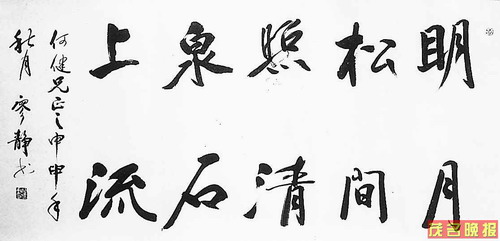 明月
松間
照清
泉石
上流
何健兄正之甲申年
秋月 廖静书
茂名晚报